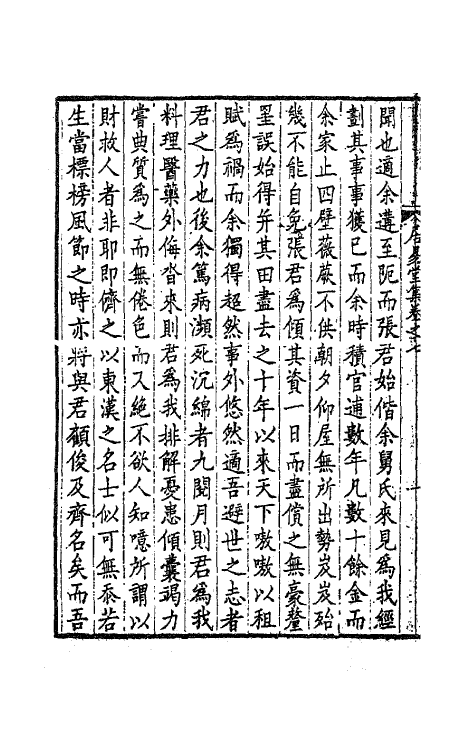 居易堂集卷之七
聞也適余遘至阨而張君始偕余舅氏來見爲我經
劃其事事獲已而余時積官逋數年凡數十餘金而
余家止四壁薇蕨不供朝夕仰屋無所出勢岌岌殆
幾不能自免張君爲傾其資一日而盡償之無豪釐
罣誤始得并其田盡去之十年以來天下嗷嗷以租
賦爲禍而余獨得超然事外悠然適吾避世之志者
君之力也後余篤病瀕死沉綿者九閱月則君爲我
料理醫藥外侮沓來則君爲我排解憂患傾囊竭力
嘗典質爲之而無倦色而又絕不欲人知噫所謂以
財救人者非耶即儕之以東漢之名士似可無忝若
生當標榜風節之時亦將與君顧俊及齊名矣而吾